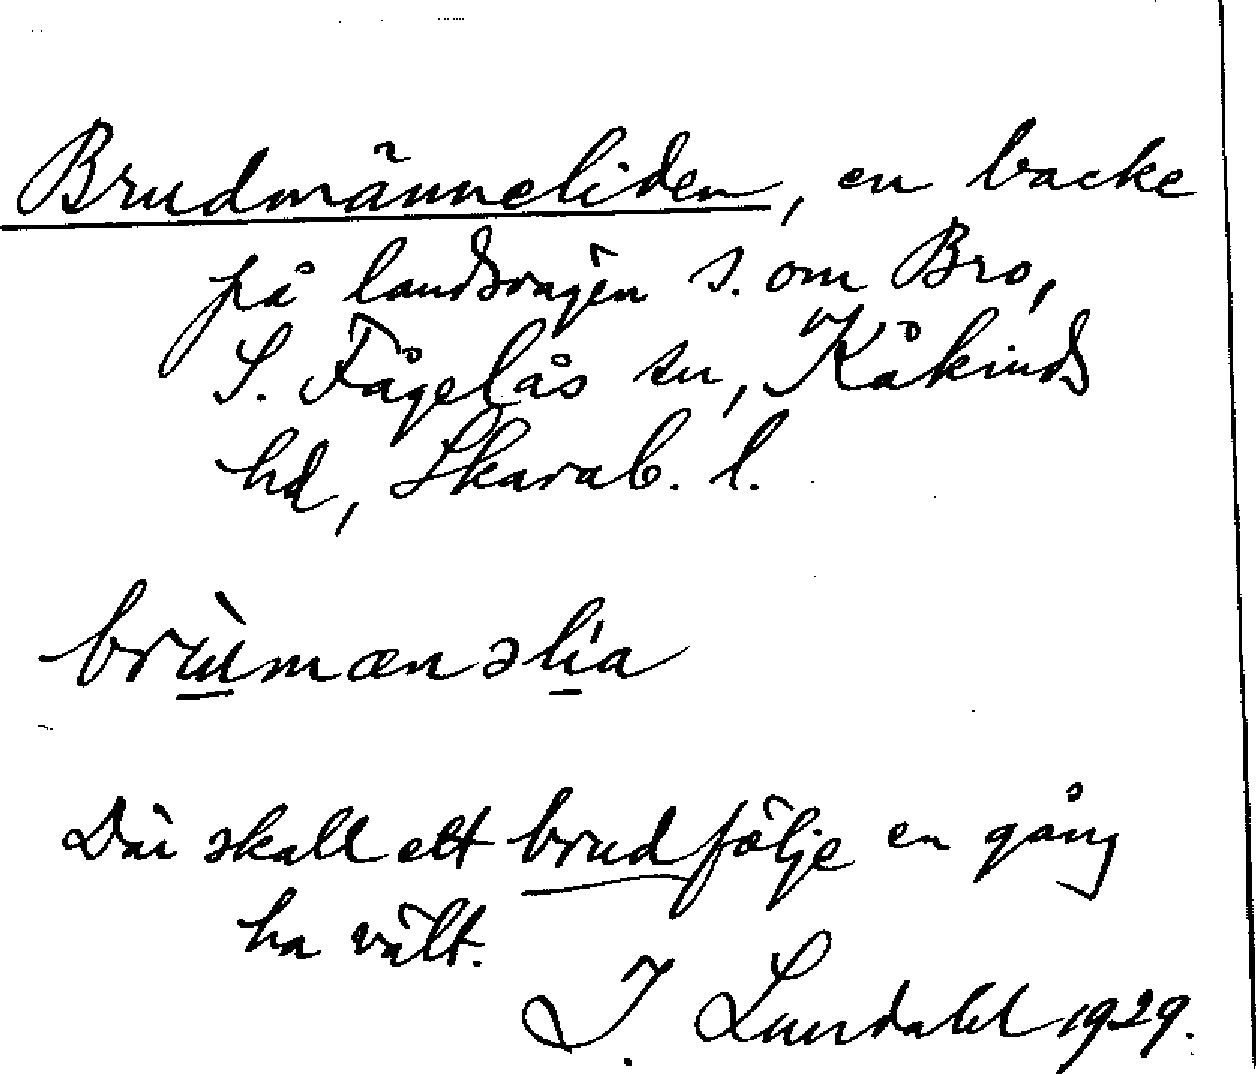 Brudmänneliden, en backe
på landsvägen s. om Bro,
S. Fågelås sn, Kåkinds
hd, Skarab. l.
brùmænəlia
Där skall ett brudfölje en gång
ha vält.
I. Lundahl 1929.